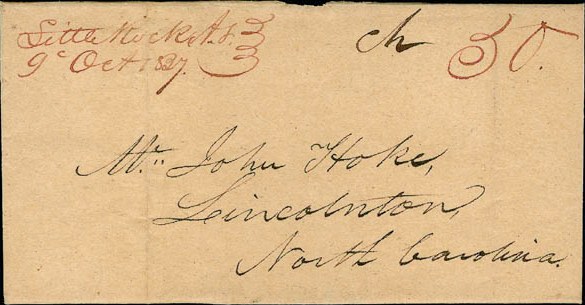 Little Rock A.T.
9th Oct 1827.
ch
50.
Mr. John Hoke,
Lincolnton,
North Carolina.